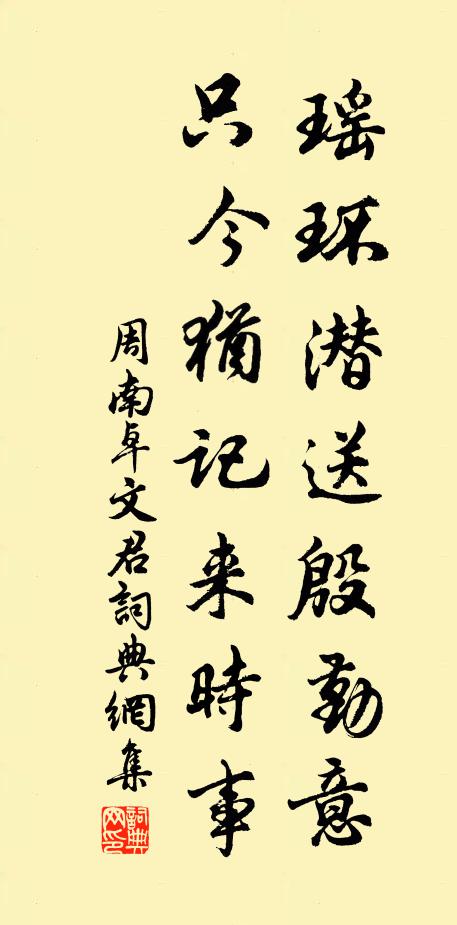 瑶环潜送殷勤意
只今犹记来時事
周南卓文君詞典網集
詞典网印